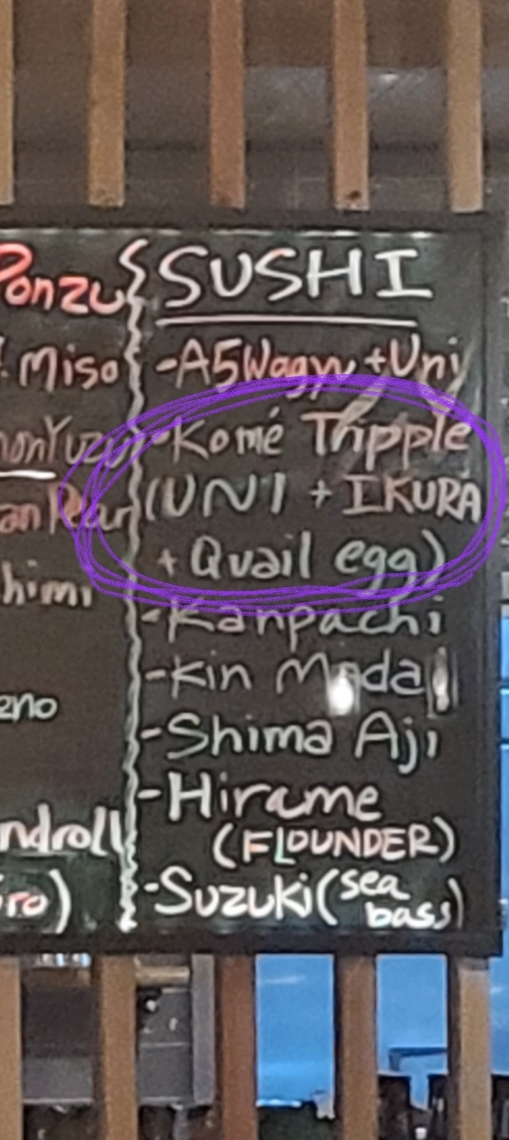 Ponzu
Miso
himi
SUSHI
-A5 Wagyu + Uni
-Komé Tripple
(UNI + IKURA
+ Quail egg)
-Kanpachi
-Kin Madai
-Shima Aji
-Hirame
(FLOUNDER)
-Suzuki (sea
bass)